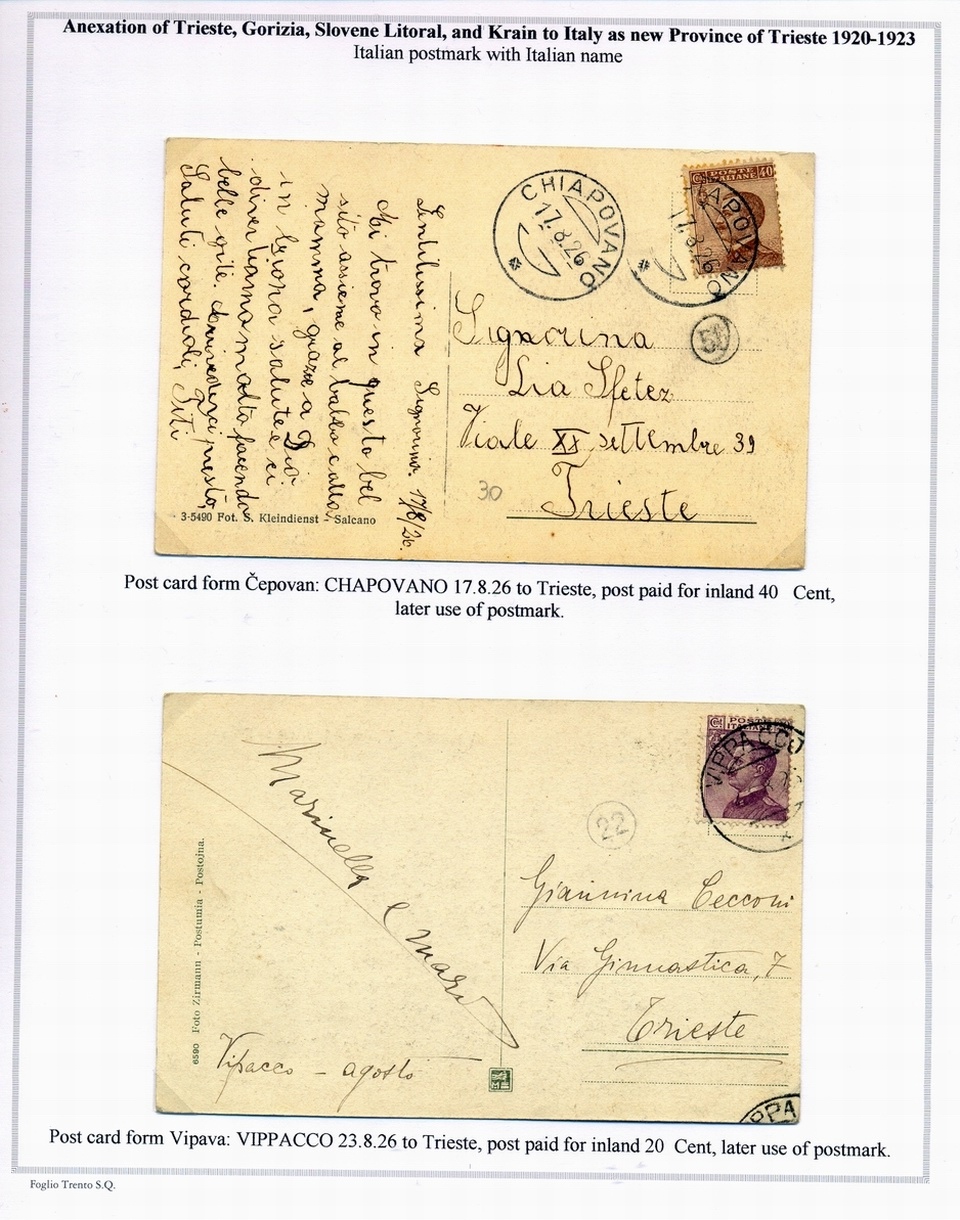 Anexation of Trieste, Gorizia, Slovene Litoral, and Krain to Italy as new Province of Trieste 1920-1923
Italian postmark with Italian name
Gentilissima Signorina 17/8/26.
Mi trovo in questo bel
sito assieme al babbo e alla
mamma, grazie a Dio
in buona salute e ci
divertiamo molto facendo
belle gite. Arrivederci presto,
Saluti cordiali, Titi
3-5490 Fot. S. Kleindienst - Salcano
CHIAPOVANO
17.8.26
POSTE ITALIANE
40
CHIAPOVANO
17.8.26
51
Signorina
Lia Sfetez
Viale XX settembre 39
Trieste
30
Post card form Čepovan: CHAPOVANO 17.8.26 to Trieste, post paid for inland 40 Cent,
later use of postmark.
POSTE
ITALIANE
VIPPACCO
22
Marinella e Mario
Giannina Cecconi
Via Ginnastica, 7
Trieste
Vipacco - agosto
6590 Foto Zirmann - Postumia - Postojna.
VIPPA
Post card form Vipava: VIPPACCO 23.8.26 to Trieste, post paid for inland 20 Cent, later use of postmark.
Foglio Trento S.Q.